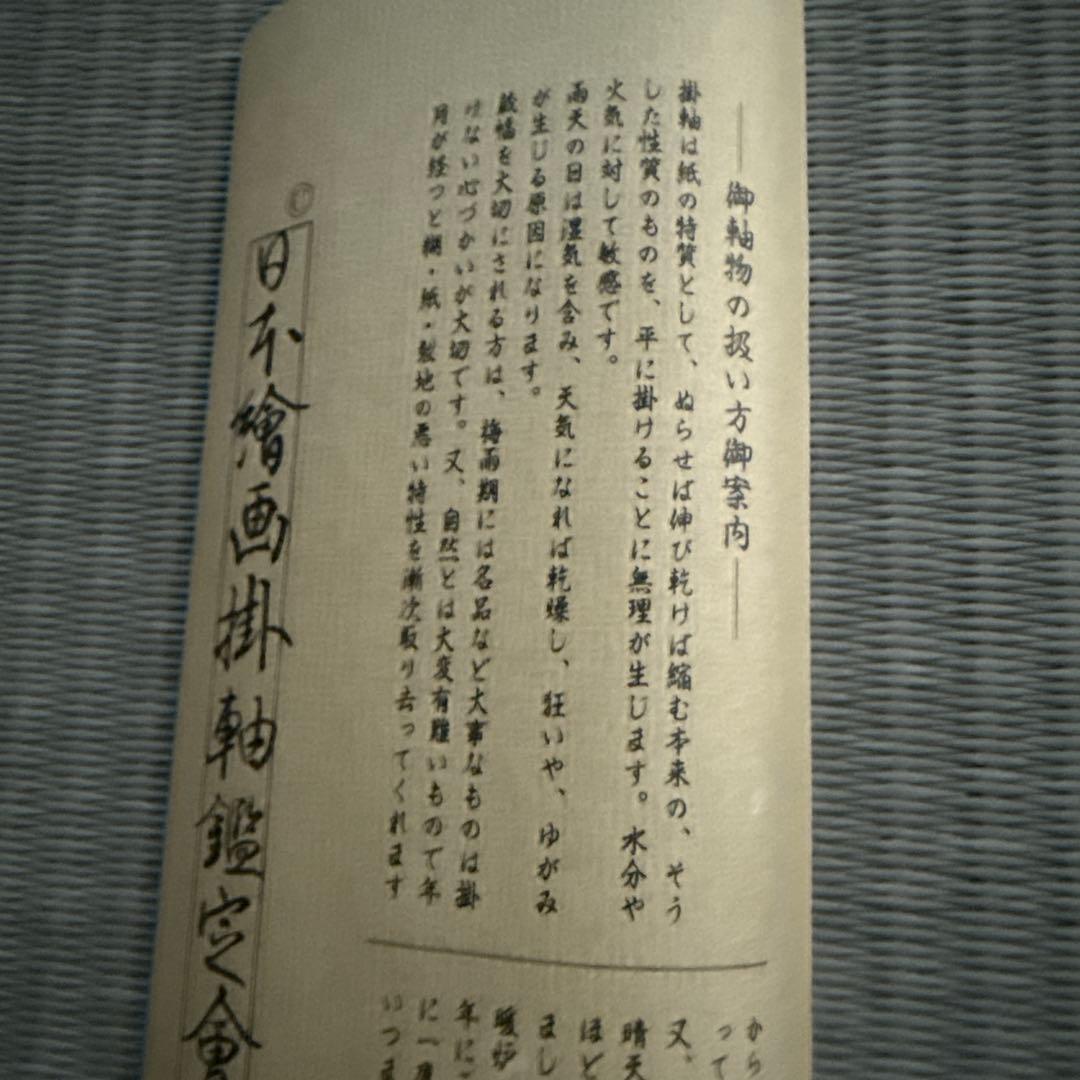 御軸物の扱い方御案内
掛軸は紙の特質として、ぬらせば伸び乾けば縮む本来の、そう
した性質のものを、平に掛けることに無理が生じます。水分や
火気に対して敏感です。
雨天の日は湿気を含み、天気になれば乾燥し、狂いや、ゆがみ
が生じる原因になります。
蔵幅を大切にされる方は、梅雨期には名品など大事なものは掛
けない心づかいが大切です。又、自然とは大変有難いもので年
月が経つと糊・紙・裂地の悪い特性を漸次取り去ってくれます
から
って
又、
晴天
ほど
まし
暖炉
年に
に一度
いつま
日本繪画掛軸鑑定會